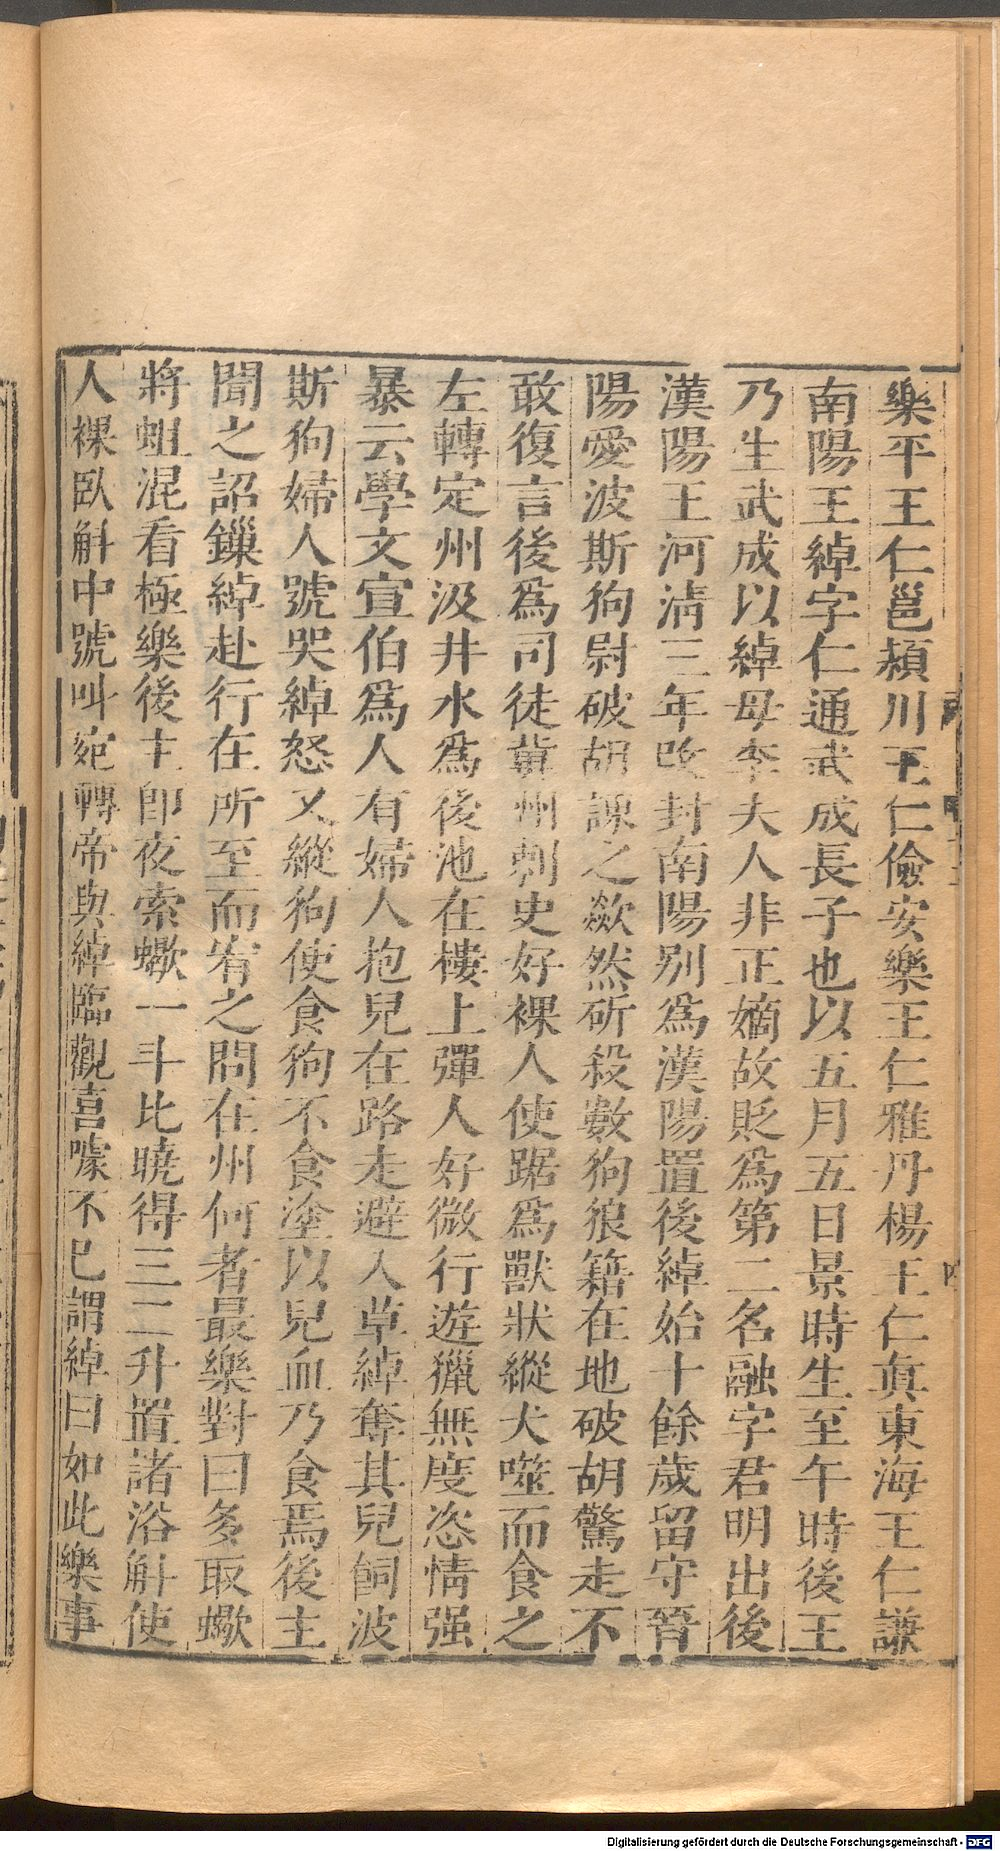 樂平王仁邕潁川王仁儉安樂王仁雅丹楊王仁直東海王仁謙
南陽王綽字仁通武成長子也以五月五日景時生至午時後王
乃生武成以綽母李夫人非正嫡故貶為第二名融字君明出後
漢陽王河清三年改封南陽別為漢陽置後綽始十餘歲留守晉
陽愛波斯狗尉破胡諫之歘然斫殺數狗狼籍在地破胡驚走不
敢復言後為司徒冀州刺史好裸人使踞為獸狀縱犬噬而食之
左轉定州汲井水為後池在樓上彈人好微行遊獵無度恣情强
暴云學文宣伯為人有婦人抱兒在路走避入草綽奪其兒飼波
斯狗婦人號哭綽怒又縱狗使食狗不食塗以兒血乃食焉後主
聞之詔鏁綽赴行在所至而宥之問在州何者最樂對曰多取蠍
將蛆混看極樂後主卽夜索蠍一斗比曉得三二升置諸浴斛使
人裸臥斛中號叫宛轉帝與綽臨觀喜噱不已謂綽曰如此樂事
Digitalisierung gefördert durch die Deutsche Forschungsgemeinschaft - DFG